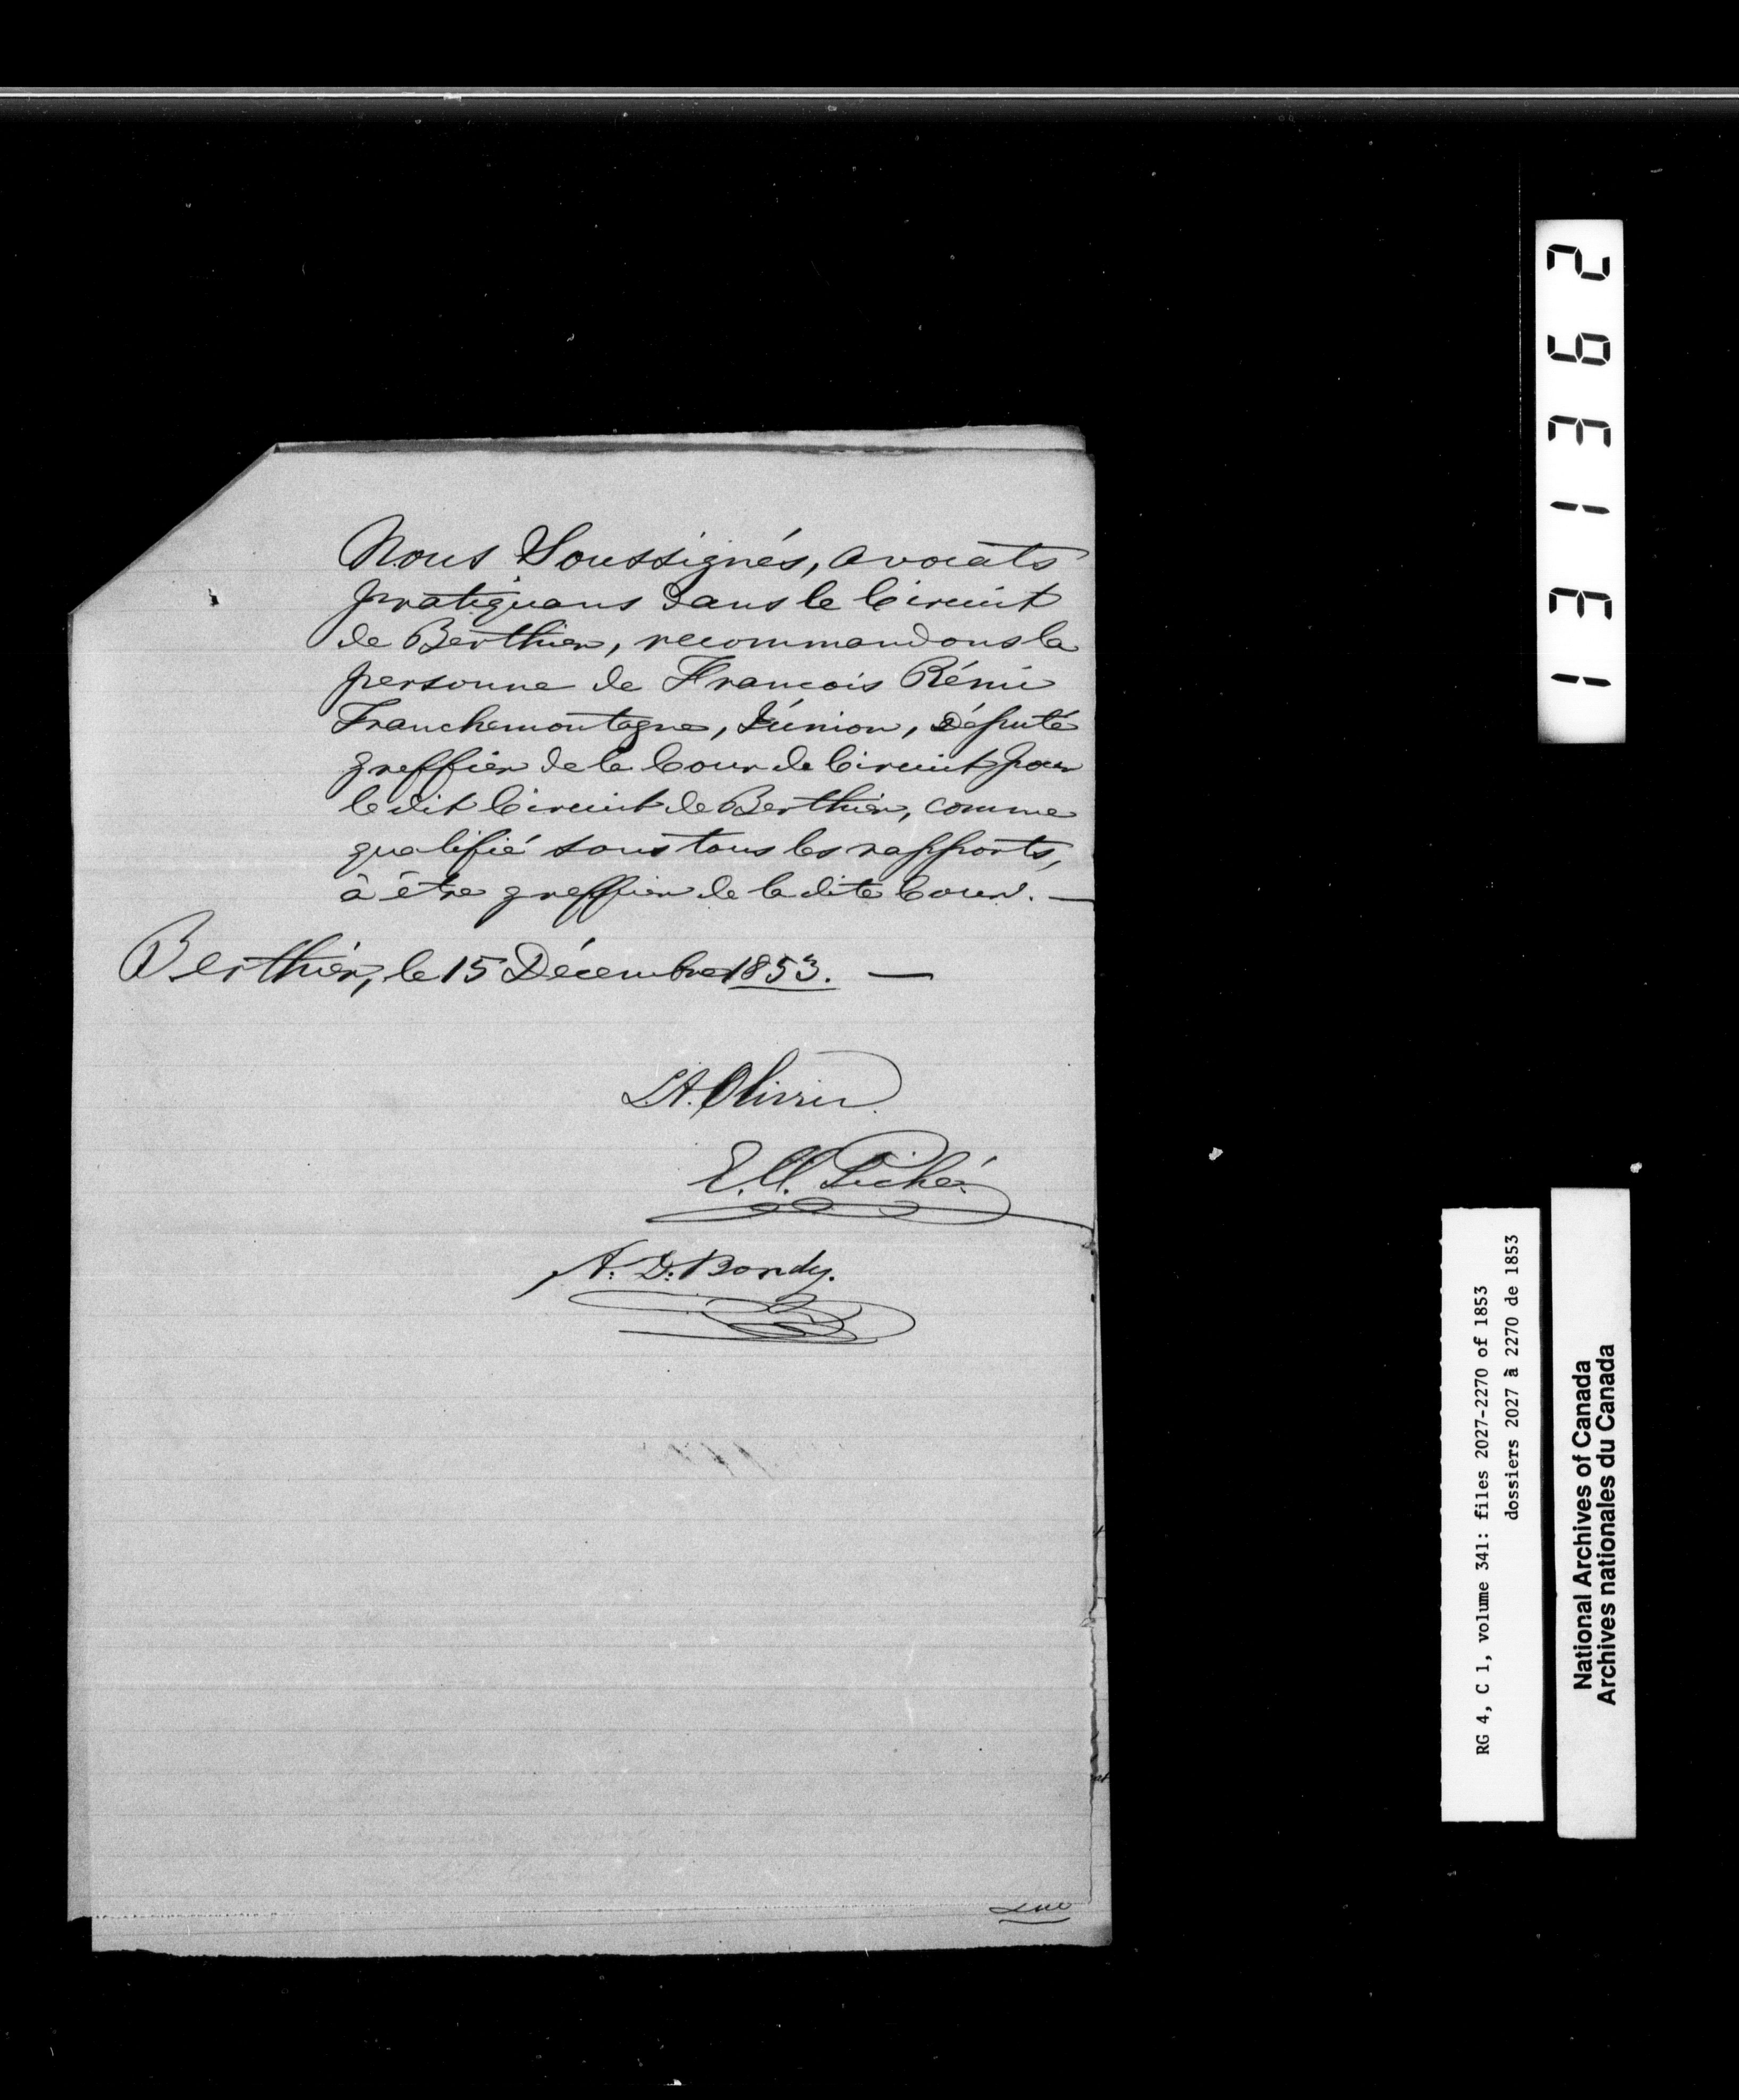 Nous Soussignés, avocats
pratiquans dans le Circuit
de Berthier, recommandons la
personne de Francois Rémi
Franchemontagne, Júnior, Député
greffier de la Cour de Circuit pour
le dit Circuit de Berthier, comme
qualifié sous tous les rapports,
à être greffier de la dite Cour. —
Berthier, le 15 Décembre 1853. —
L.A. Olivier
E.U. Piché
A. D. Bondy.
131362
RG 4, C 1, volume 341: files 2027-2270 of 1853
dossiers 2027 à 2270 de 1853
National Archives of Canada
Archives nationales du Canada